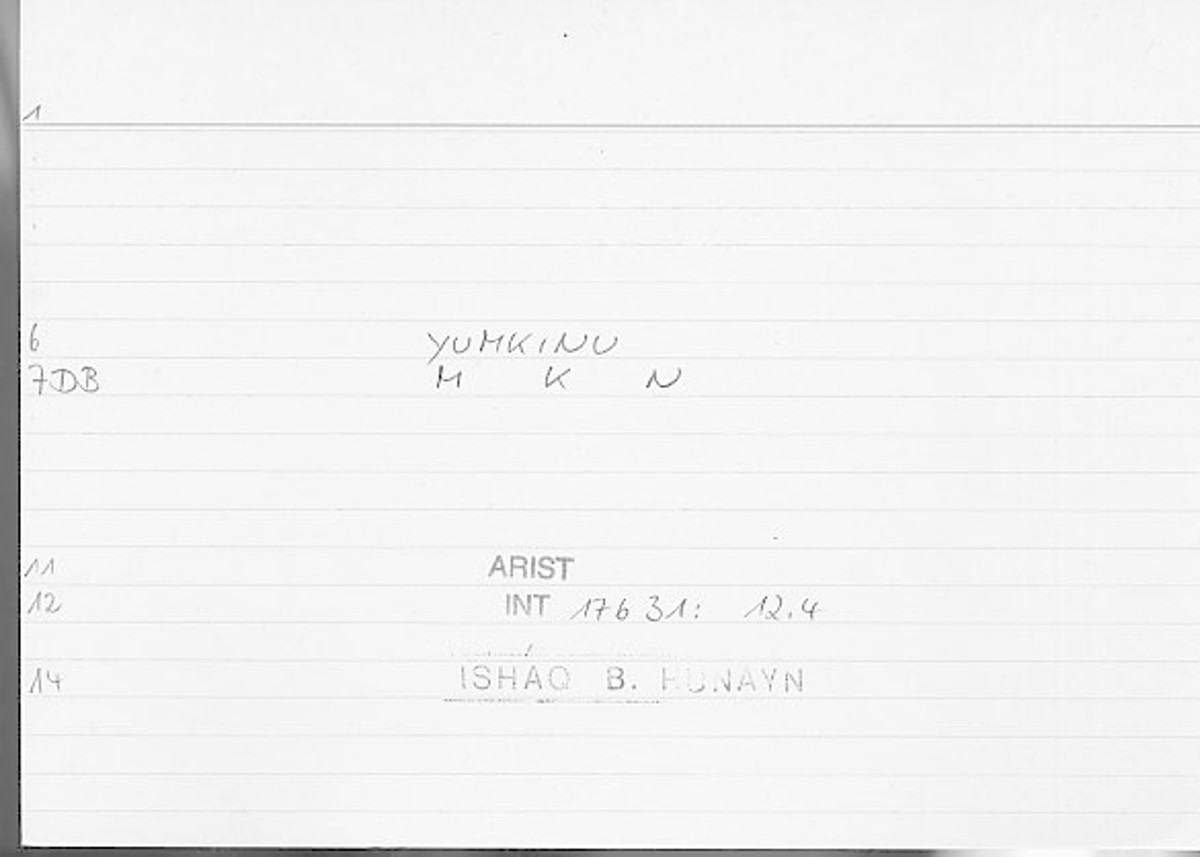 1
6 YUMKINU
7DB M K N
11 ARIST
12 INT 176 31: 12.4
14 ISHAQ B. HUNAYN